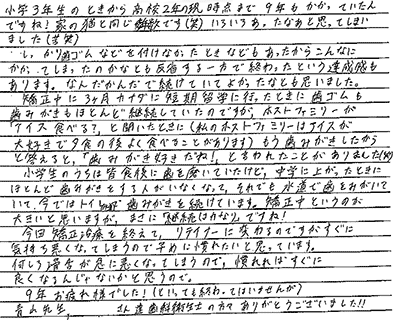 小学3年生のときから高校2年の現時点まで9年もかかっていたん
ですね!家の猫と同じ年数です(笑)いろいろあったなあと思ってしまい
ました(苦笑)
しっかりゴムなどを付けなかったときなどもあったからこんなに
かかってしまったのかなとも反省する一方で終わったという達成感も
あります。なんだかんだで続けていてよかったなとも思いました。
矯正中に3ヶ月カナダに短期留学に行ったときに歯ゴムも
歯みがきもほとんど継続していたのですが、ホストファミリーが
「アイス食べる?」と聞いたときに(私のホストファミリーはアイスが
大好きで夕食の後よく食べることがあります)もう歯みがきしたから
と答えると、「歯みがき好きだね!」と言われたことがありました(笑)
小学生のうちは皆食後に歯を磨いていたけど、中学に上がったときに
ほとんど歯みがきをする人がいなくなって、それでも水道で歯をみがいて
いて、今ではトイレ 歯みがきを続けています。矯正中というのが
大きいと思いますが、まさに「継続は力なり」ですね!
今回矯正治療を終えて、リテイナーに変わるのですがすぐに
気持ち悪くなってしまうので早めに慣れたいと思っています。
何しろ滑舌が急に悪くなってしまうので、慣れればすぐに
良くなるんじゃないかと思うので。
9年お疲れ様でした!(といっても終わってはいませんが)
青山先生、 さん達歯科衛生士の方々ありがとうございました!!